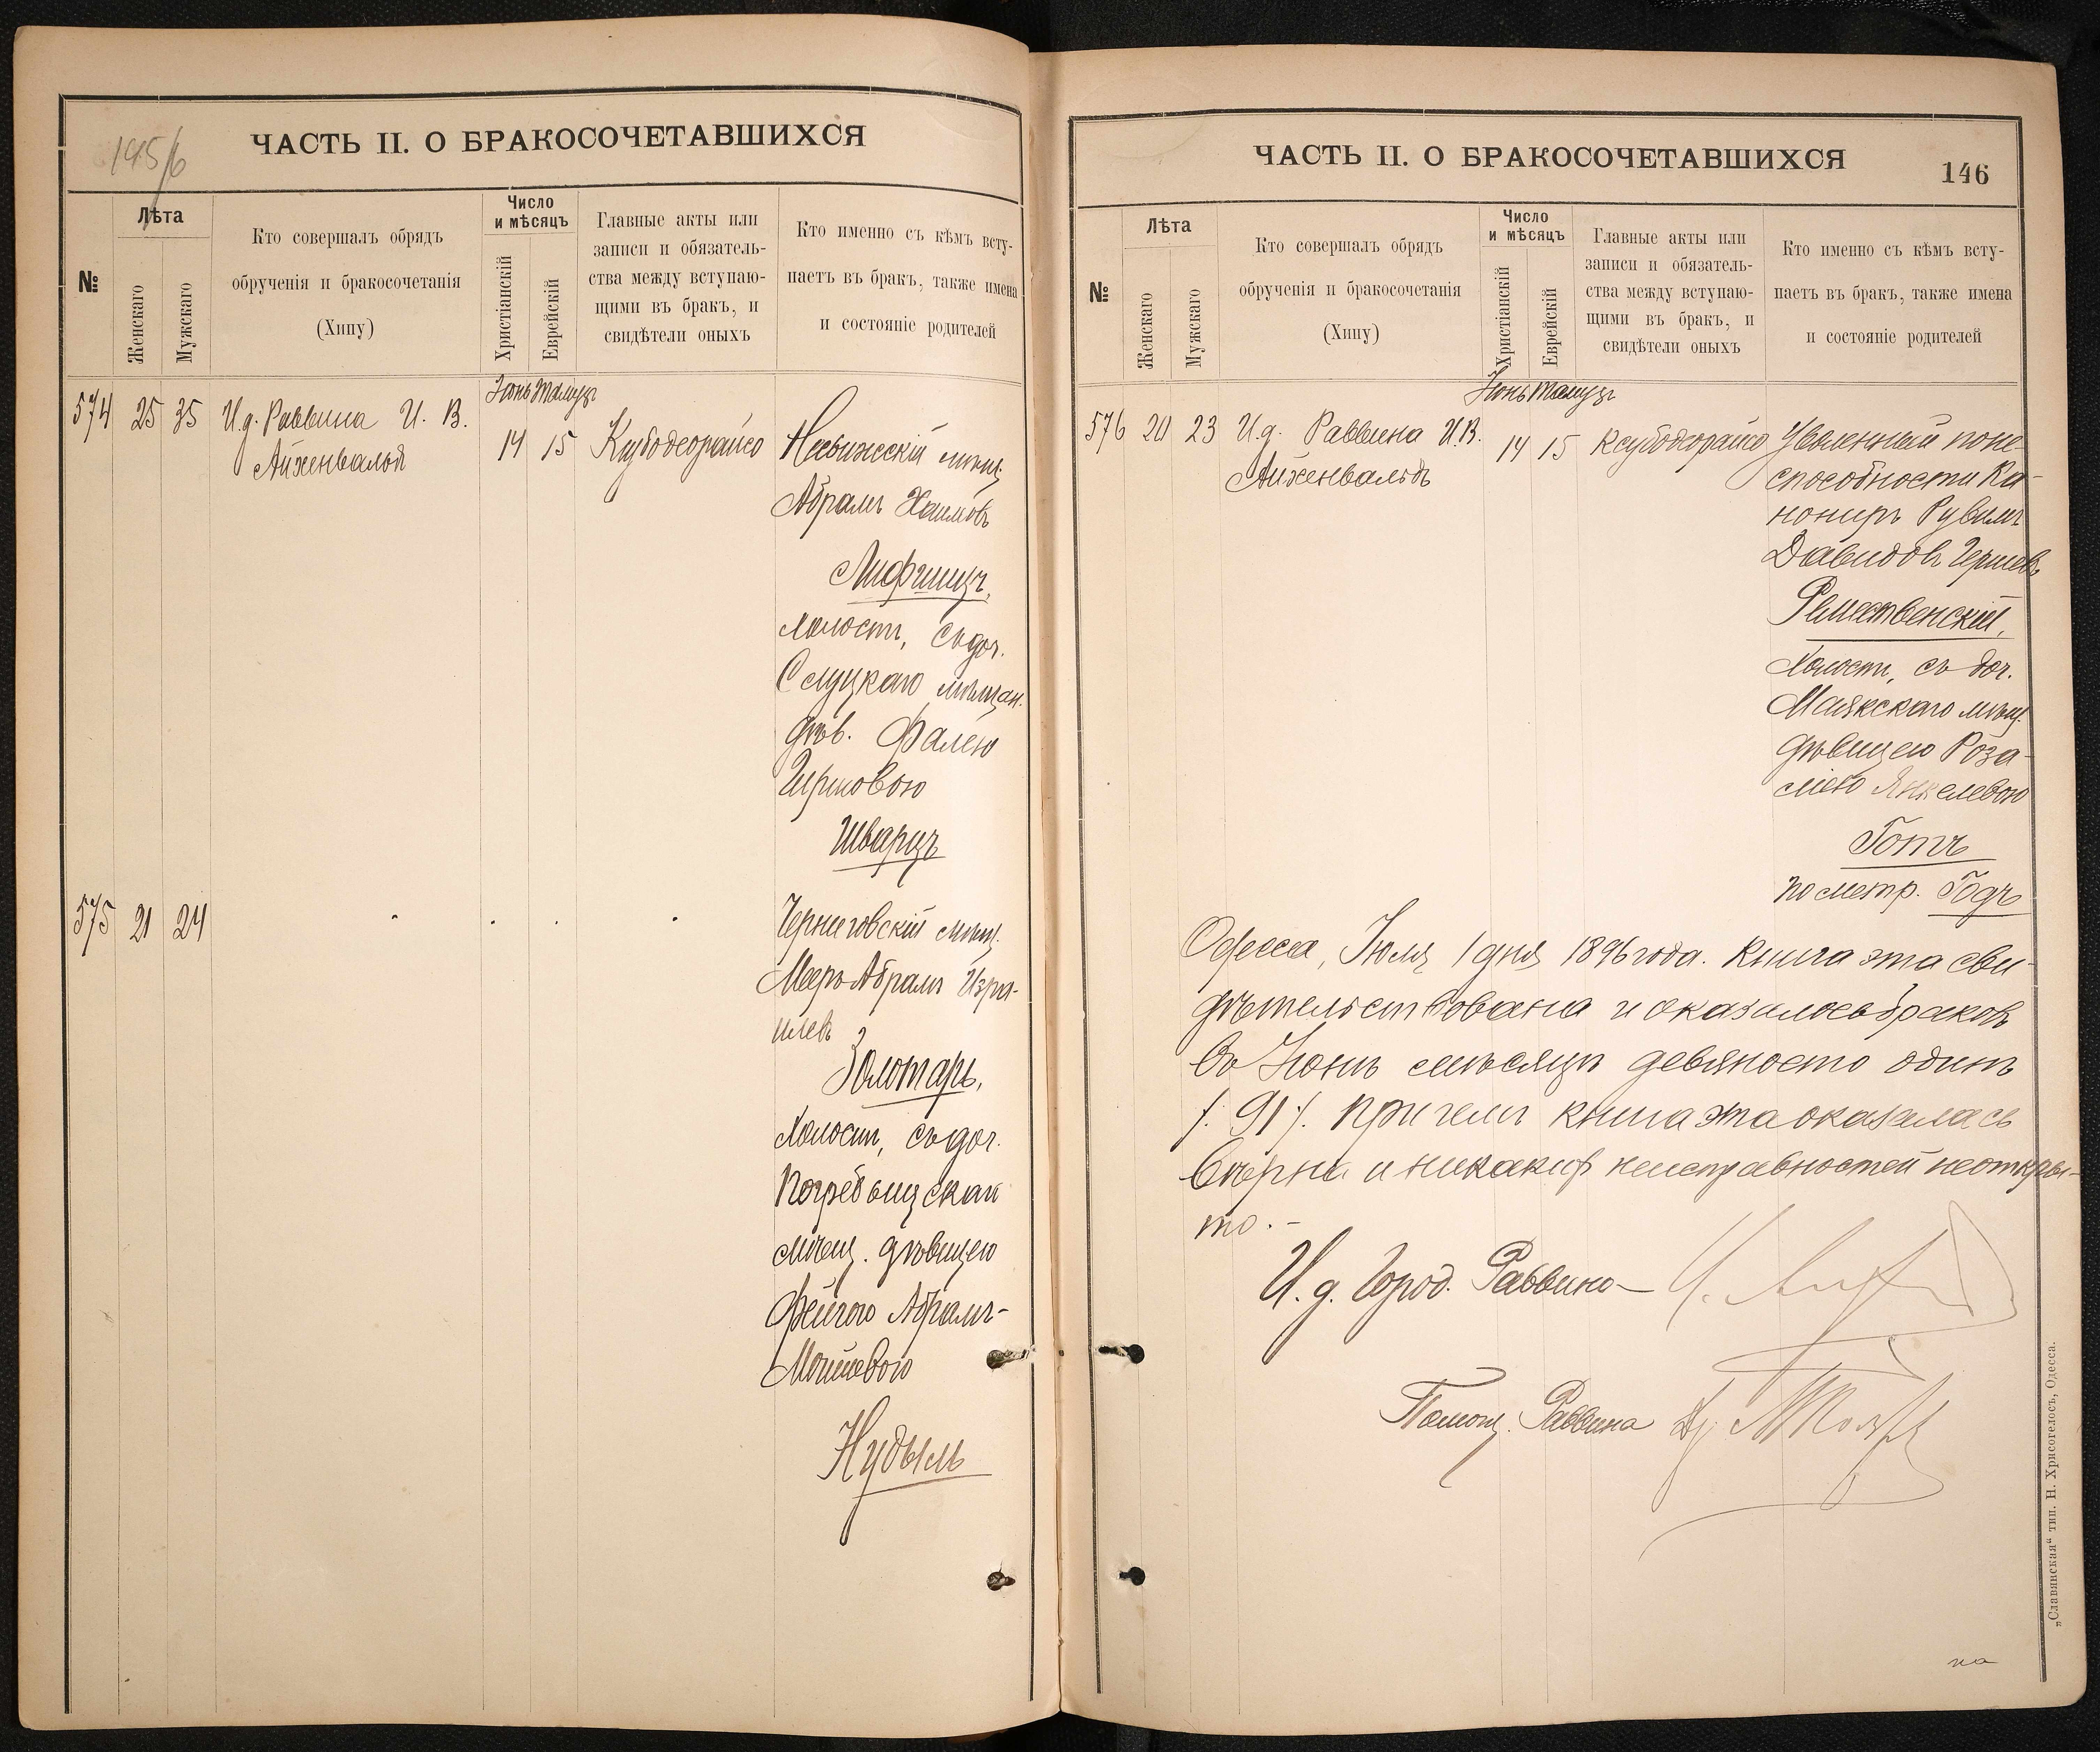 145/6
ЧАСТЬ II. О БРАКОСОЧЕТАВШИХСЯ
№
Лѣта
Женскаго
Мужскаго
Кто совершалъ обрядъ
обрученія и бракосочетанія
(Хипу)
Число
и мѣсяцъ
Христіанскій
Еврейскій
Главные акты или
записи и обязатель-
ства между вступаю-
щими въ бракъ, и
свидѣтели оныхъ
Кто именно съ кѣмъ всту-
паетъ въ бракъ, также имена
и состояніе родителей
Іюнь Тамузъ
574 25 35 И.д. Раввина И. В.
Айхенвальд
14 15 Ксубодеорайсо
Несвижскій мѣщ.
Абрамъ Хаимовъ
Лифшицъ,
холостъ, съ доч.
Слуцкаго мѣщан.
дѣв. Фалею
Гершковою
Шварцъ
575 21 24
Черниговскій мѣщ.
Мееръ Абрамъ Изра-
илевъ
Золотарь,
холостъ, съ доч.
Погребыщскаи
мѣщ. дѣвицею
Фейгою Абрамъ-
Мошевою
Нудыль
ЧАСТЬ II. О БРАКОСОЧЕТАВШИХСЯ
146
№
Лѣта
Женскаго
Мужскаго
Кто совершалъ обрядъ
обрученія и бракосочетанія
(Хипу)
Число
и мѣсяцъ
Христіанскій
Еврейскій
Главные акты или
записи и обязатель-
ства между вступаю-
щими въ бракъ, и
свидѣтели оныхъ
Кто именно съ кѣмъ всту-
паетъ въ бракъ, также имена
и состояніе родителей
Іюнь Тамузъ
576 20 23 И.д. Раввина И.В.
Айхенвальдъ
14 15 Ксубодеорайсо
Уволенный по не-
способности Ка-
нониръ Рувимъ
Давидовъ Гершовъ
холостъ, съ доч.
Маякскаго мѣщ.
дѣвицею Роза-
ліею Янкелевою
Готъ
по метр. Годъ
Одесса, Іюля 1 дня 1896 года. Книга эта сви-
дѣтельствована и оказалось браковъ
въ Іюнѣ мѣсяцѣ девяносто одинъ
/: 91 :/. При чемъ книга эта оказалась
вѣрна и никакихъ неисправностей не откры-
то. -
И. д. Город. Раввина
Помощ. Раввина
„Славянская“ тип. Н. Хрисогелосъ, Одесса.